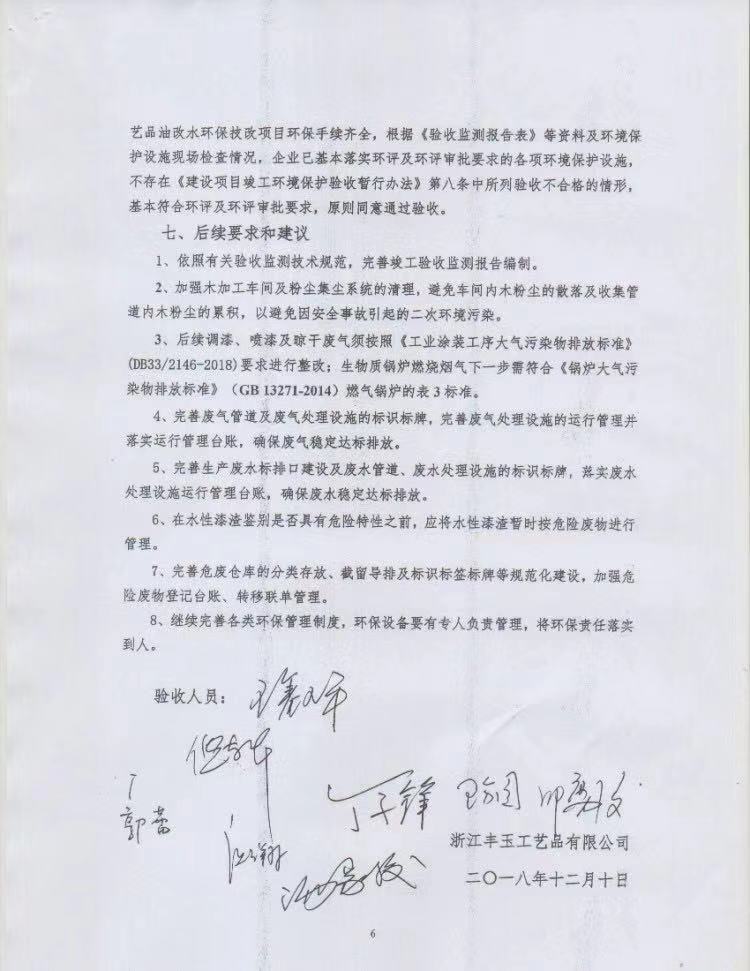 艺品油改水环保技改项目环保手续齐全，根据《验收监测报告表》等资料及环境保
护设施现场检查情况，企业已基本落实环评及环评审批要求的各项环境保护设施，
不存在《建设项目竣工环境保护验收暂行办法》第八条中所列验收不合格的情形，
基本符合环评及环评审批要求，原则同意通过验收。
七、后续要求和建议
1、依照有关验收监测技术规范，完善竣工验收监测报告编制。
2、加强木加工车间及粉尘集尘系统的清理，避免车间内木粉尘的散落及收集管
道内木粉尘的累积，以避免因安全事故引起的二次环境污染。
3、后续调漆、喷漆及晾干废气须按照《工业涂装工序大气污染物排放标准》
(DB33/2146-2018)要求进行整改；生物质锅炉燃烧烟气下一步需符合《锅炉大气污
染物排放标准》（GB 13271-2014）燃气锅炉的表3标准。
4、完善废气管道及废气处理设施的标识标牌，完善废气处理设施的运行管理并
落实运行管理台账，确保废气稳定达标排放。
5、完善生产废水标排口建设及废水管道、废水处理设施的标识标牌，落实废水
处理设施运行管理台账，确保废水稳定达标排放。
6、在水性漆渣鉴别是否具有危险特性之前，应将水性漆渣暂时按危险废物进行
管理。
7、完善危废仓库的分类存放、截留导排及标识标签标牌等规范化建设，加强危
险废物登记台账、转移联单管理。
8、继续完善各类环保管理制度，环保设备要有专人负责管理，将环保责任落实
到人。
验收人员：
郭蕾
浙江丰玉工艺品有限公司
二〇一八年十二月十日
6